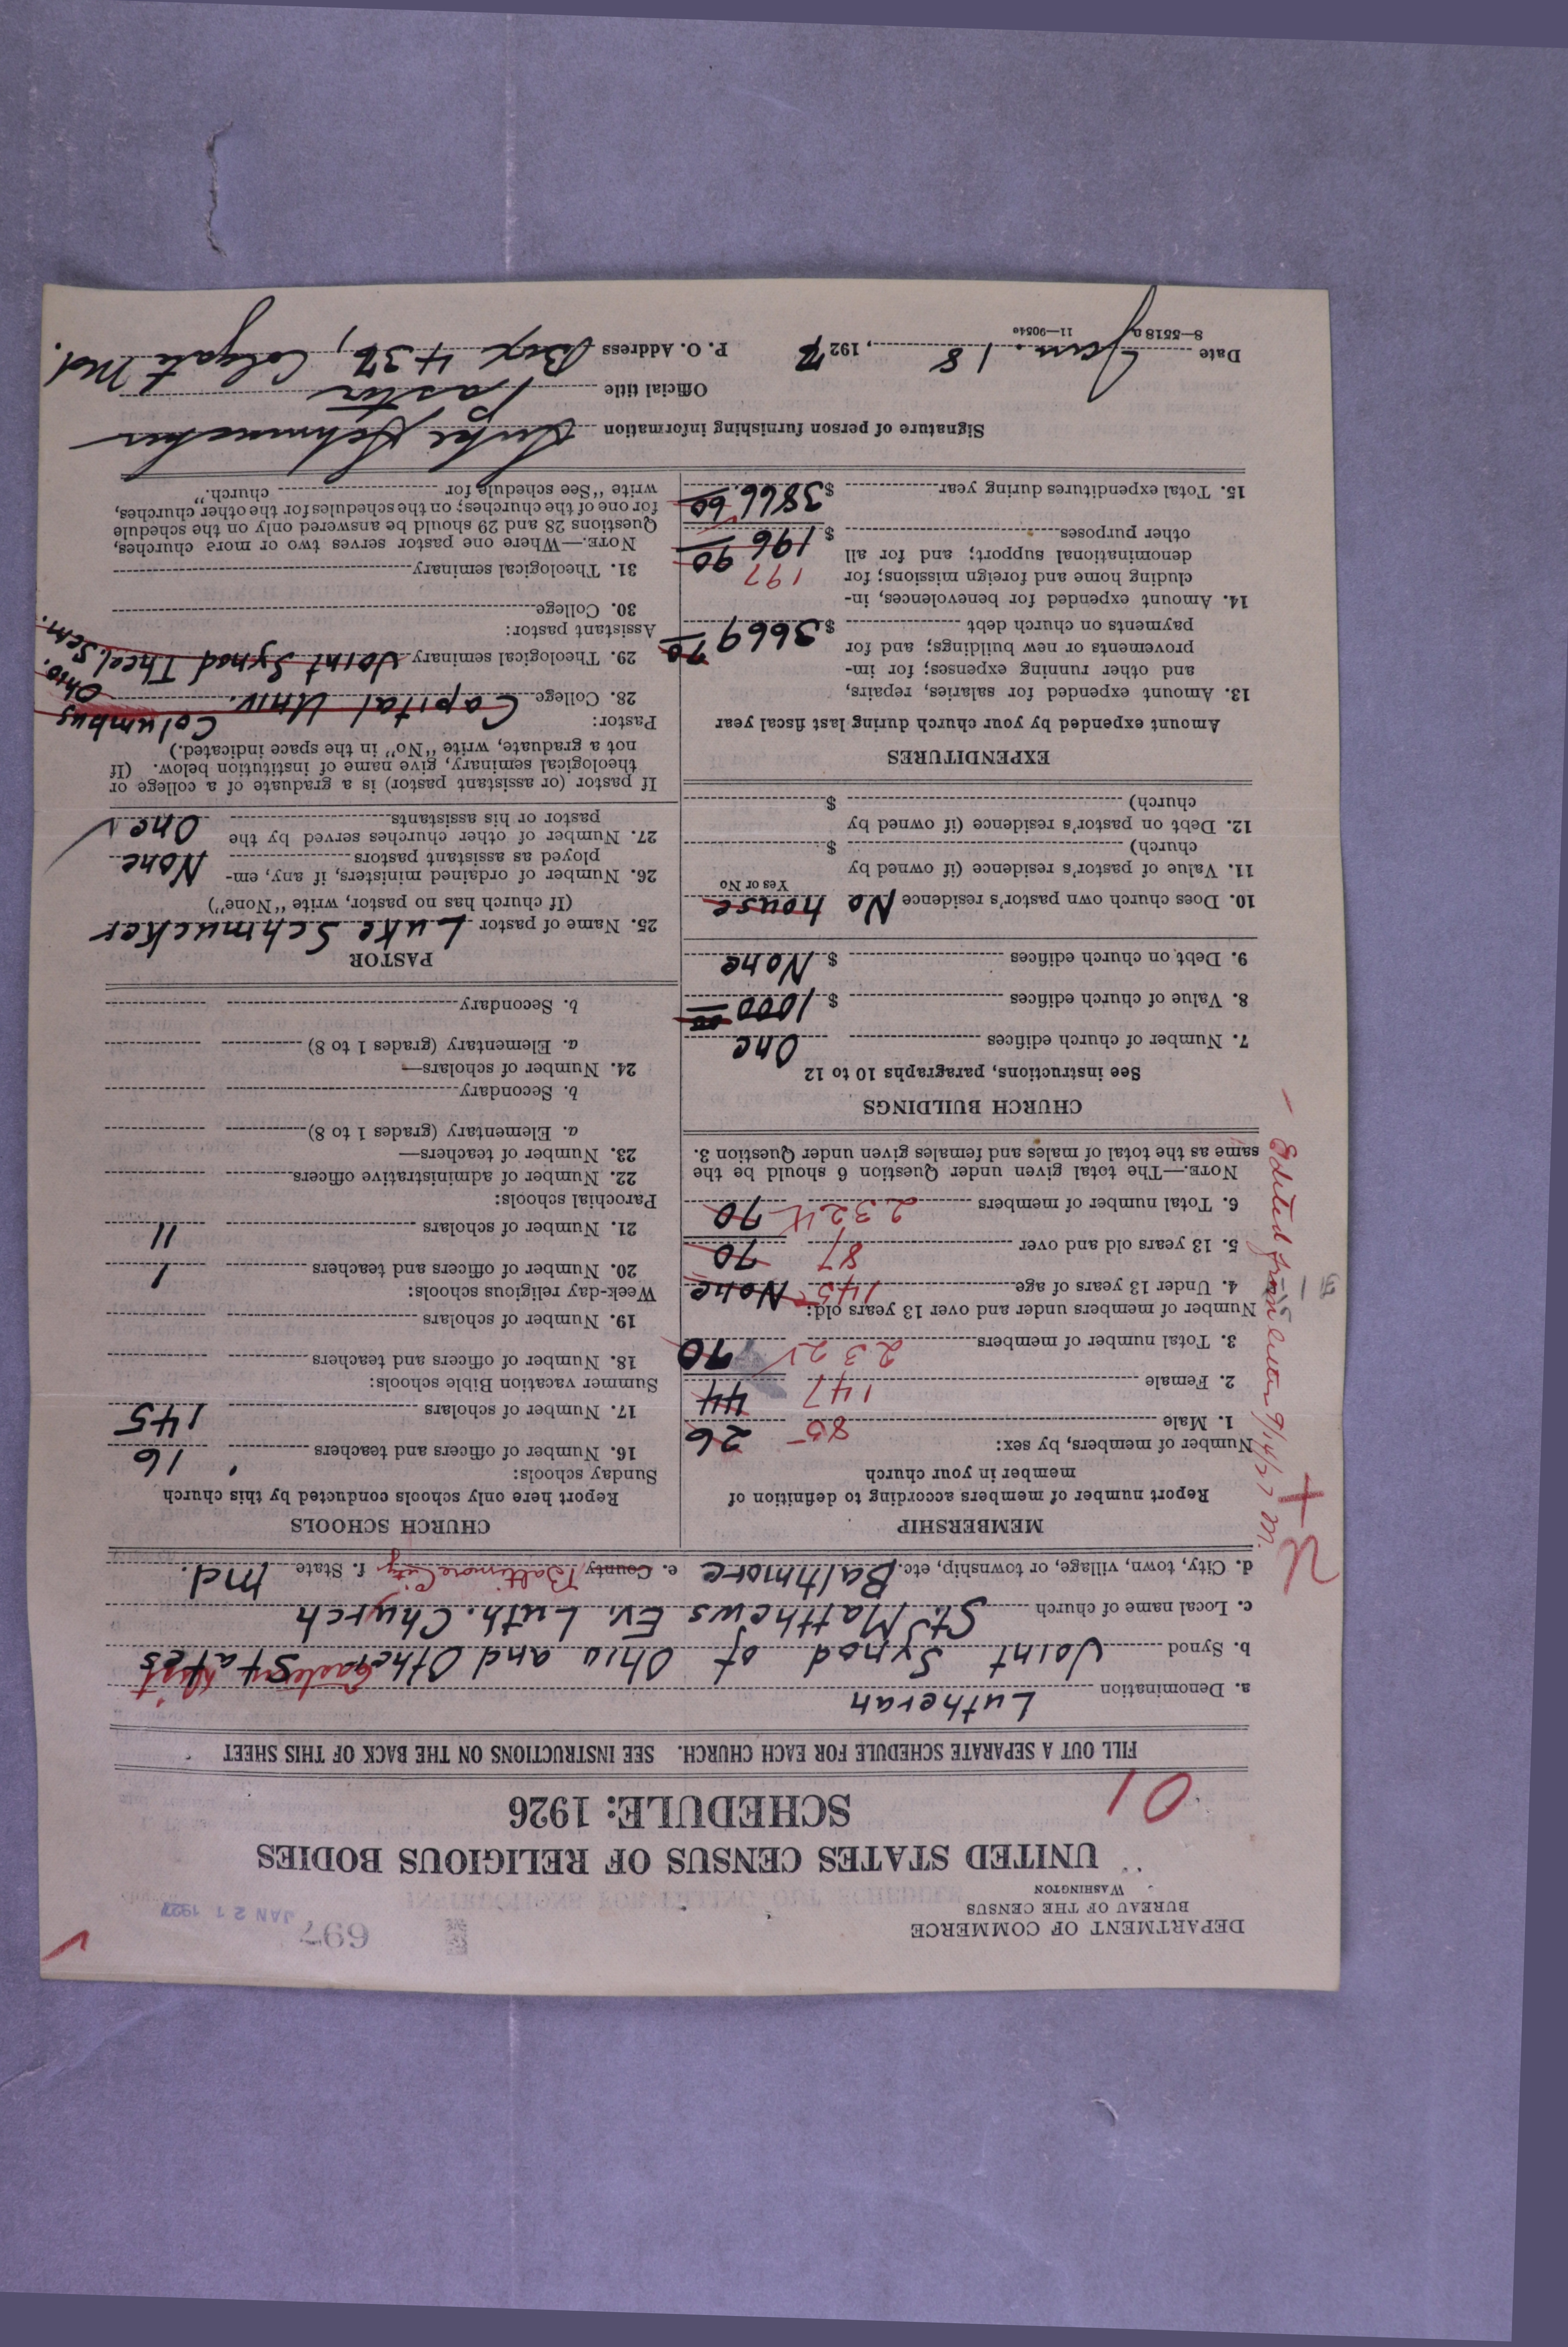 DEPARTMENT OF COMMERCE
BUREAU OF THE CENSUS
WASHINGTON
697
JAN 21 1927
UNITED STATES CENSUS OF RELIGIOUS BODIES
SCHEDULE: 1926
01
FILL OUT A SEPARATE SCHEDULE FOR EACH CHURCH. SEE INSTRUCTIONS ON THE BACK OF THIS SHEET
a. Denomination Lutheran
b. Synod Joint Synod of Ohio and Other States Eastern Dist
c. Local name of church St. Matthews Ev. Luth. Church
d. City, town, village, or township, etc. Baltimore e. County Baltimore City f. State Md.
MEMBERSHIP
Report number of members according to definition of
member in your church
Number of members, by sex:
1. Male 85 26
2. Female 147 44
3. Total number of members 232 70
Number of members under and over 13 years old:
4. Under 13 years of age 145 None
5. 13 years old and over 87 70
6. Total number of members 232 70
NOTE.—The total given under Question 6 should be the
same as the total of males and females given under Question 3.
Edited from letter 9/14/27 M.
CHURCH BUILDINGS
See instructions, paragraphs 10 to 12
7. Number of church edifices One
8. Value of church edifices $ 1000 00
9. Debt on church edifices $ None
10. Does church own pastor's residence No house
Yes or No
11. Value of pastor's residence (if owned by
church) $
12. Debt on pastor's residence (if owned by
church) $
EXPENDITURES
Amount expended by your church during last fiscal year
13. Amount expended for salaries, repairs,
and other running expenses; for im-
provements or new buildings; and for
payments on church debt $ 3669 70
14. Amount expended for benevolences, in-
cluding home and foreign missions; for 197
denominational support; and for all
other purposes $ 196 90
15. Total expenditures during year $ 3866.60
CHURCH SCHOOLS
Report here only schools conducted by this church
Sunday schools:
16. Number of officers and teachers 16
17. Number of scholars 145
Summer vacation Bible schools:
18. Number of officers and teachers
19. Number of scholars
Week-day religious schools:
20. Number of officers and teachers 1
21. Number of scholars 11
Parochial schools:
22. Number of administrative officers
23. Number of teachers—
a. Elementary (grades 1 to 8)
b. Secondary
24. Number of scholars—
a. Elementary (grades 1 to 8)
b. Secondary
PASTOR
25. Name of pastor Luke Schmucker
(If church has no pastor, write "None")
26. Number of ordained ministers, if any, em-
ployed as assistant pastors None
27. Number of other churches served by the
pastor or his assistants One
If pastor (or assistant pastor) is a graduate of a college or
theological seminary, give name of institution below. (If
not a graduate, write "No" in the space indicated.)
Pastor:
28. College Capital Univ. Columbus Ohio.
29. Theological seminary Joint Synod Theol Sem.
Assistant pastor:
30. College
31. Theological seminary
NOTE.—Where one pastor serves two or more churches,
Questions 28 and 29 should be answered only on the schedule
for one of the churches; on the schedules for the other churches,
write "See schedule for church."
Signature of person furnishing information Luke Schmucker
Official title Pastor
Date Jan. 18, 1927 P. O. Address Box 437, Colgate Md.
8—5518a 11—9054a